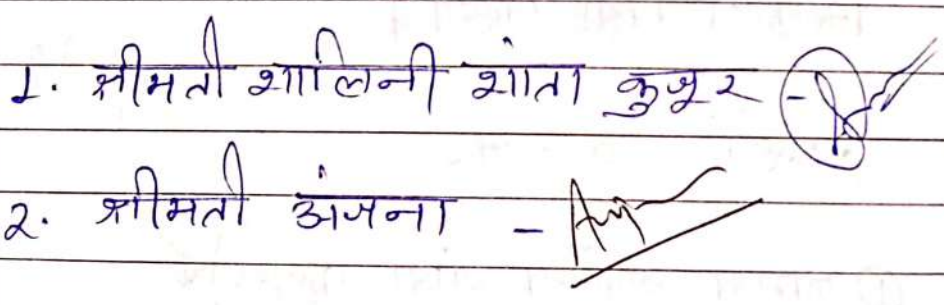 1. श्रीमती शालिनी शांता कुजूर -
2. श्रीमती अंजना -